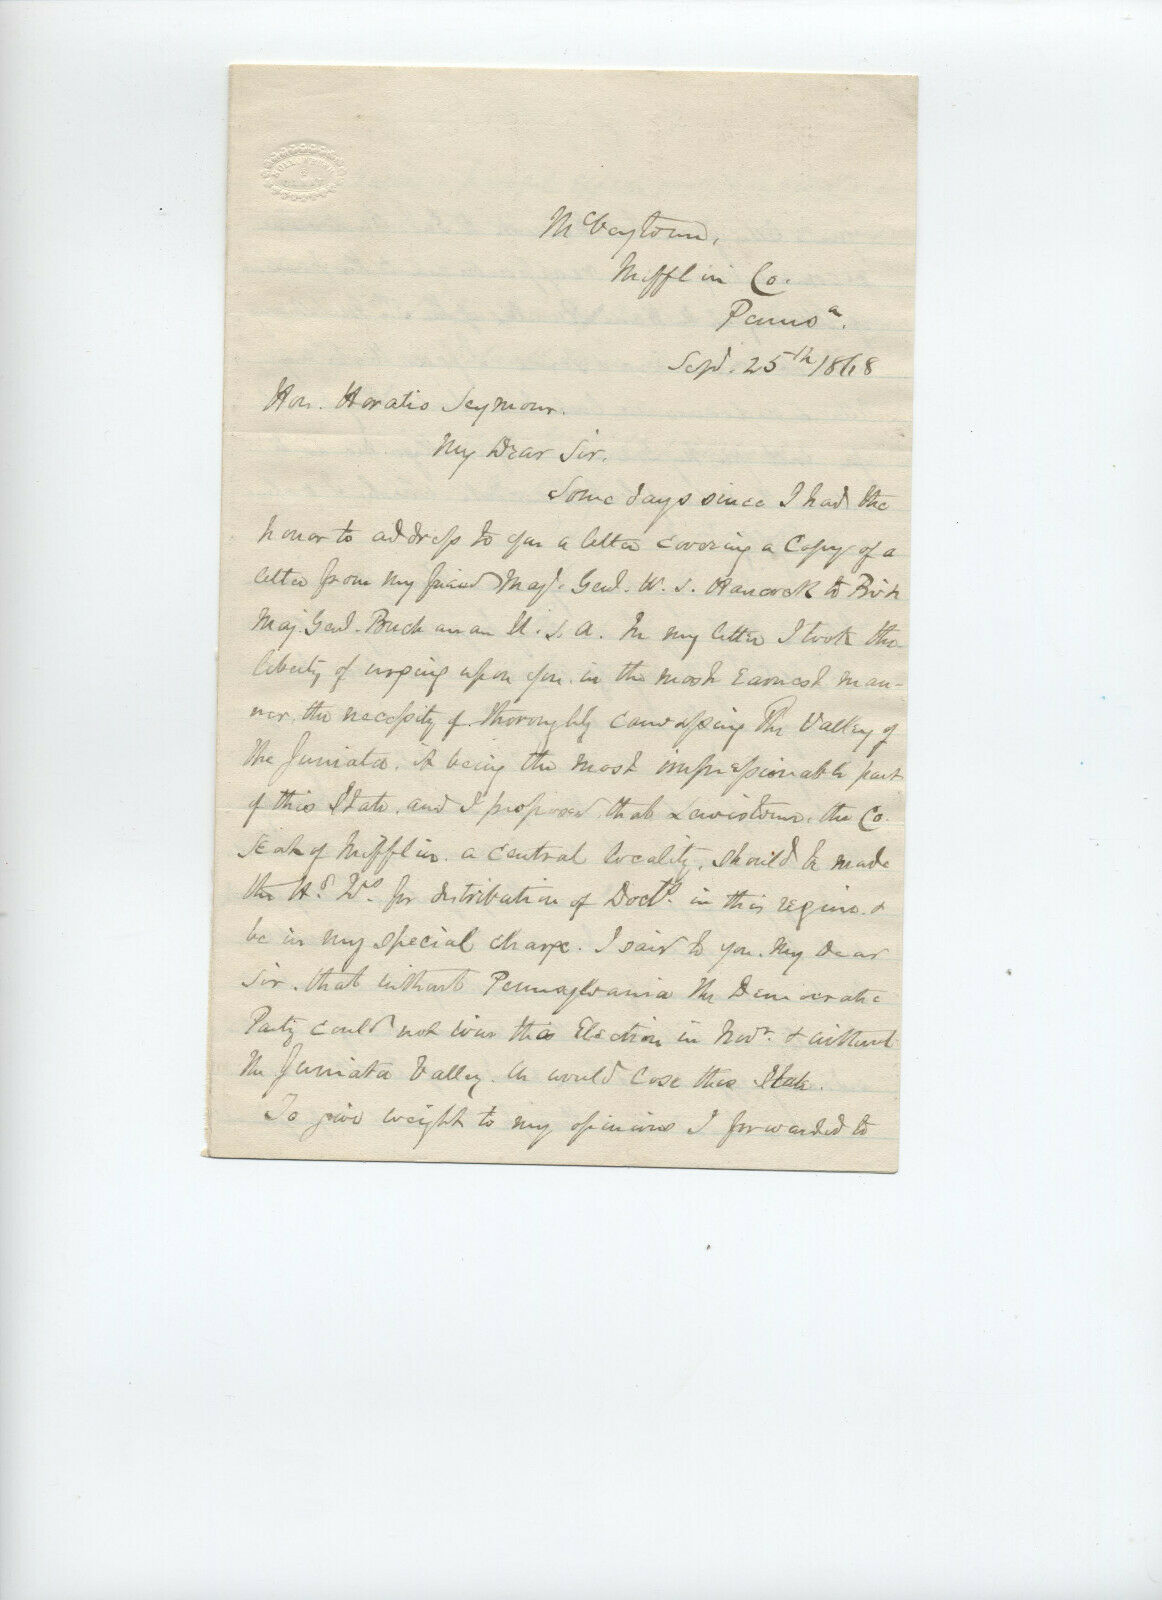 McVeytown,
Mifflin Co.
Penns a.
Sept. 25th 1868
Hon. Horatio Seymour.
My Dear Sir.
Some days since I had the
honor to address to you a letter covering a Copy of a
letter from my friend Maj. Genl. W. S. Hancock to Bvt
Maj. Genl. Buchanan U. S. A. In my letter I took the
liberty of urging upon you, in the most earnest man-
ner, the necessity of thoroughly canvassing the Valley of
the Juniata, it being the most impressionable part
of this State, and I proposed that Lewistown, the Co.
Seat of Mifflin, a central locality, should be made
the Hd Qrs. for distribution of Docts. in this region &
be in my special charge. I said to you, My Dear
Sir, that without Pennsylvania the Democratic
Party could not win this Election in Novr. & without
the Juniata Valley, we would lose this State.
To give weight to my opinions I forwarded to